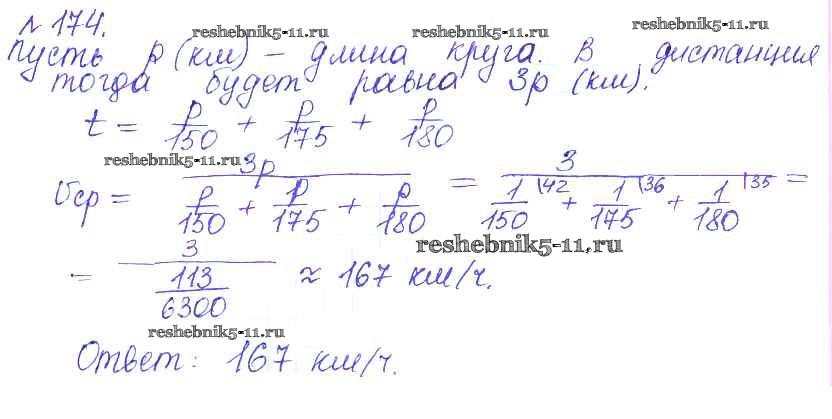 № 174. reshebnik5-11.ru reshebnik5-11.ru reshebnik5-11.ru
Пусть p (км) – длина круга. В дистанция
тогда будет равна 3p (км).
t = p/150 + p/175 + p/180
reshebnik5-11.ru
Uср = 3p / (p/150 + p/175 + p/180) = 3 / (1/150 \42 + 1/175 \36 + 1/180 \35) =
reshebnik5-11.ru
= 3 / (113/6300) ≈ 167 км/ч.
reshebnik5-11.ru
Ответ: 167 км/ч.